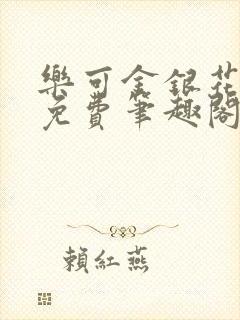 樂可金銀花
免費筆趣閣
賴紅燕